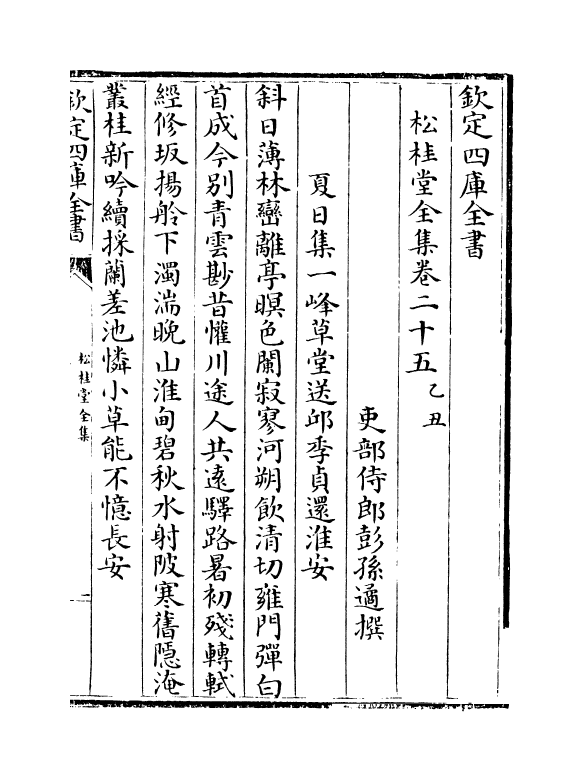 欽定四庫全書
松桂堂全集卷二十五乙丑
吏部侍郎彭孫遹撰
夏日集一峰草堂送邱季貞還淮安
斜日薄林巒離亭暝色闌寂寥河朔飲清切雍門彈白
首成今别青雲尠昔懽川途人共逺驛路暑初殘轉軾
經修坂揚舲下濁湍晚山淮甸碧秋水射陂寒舊隠淹
叢桂新吟續採蘭差池憐小草能不憶長安
欽定四庫全書
松桂堂全集
一